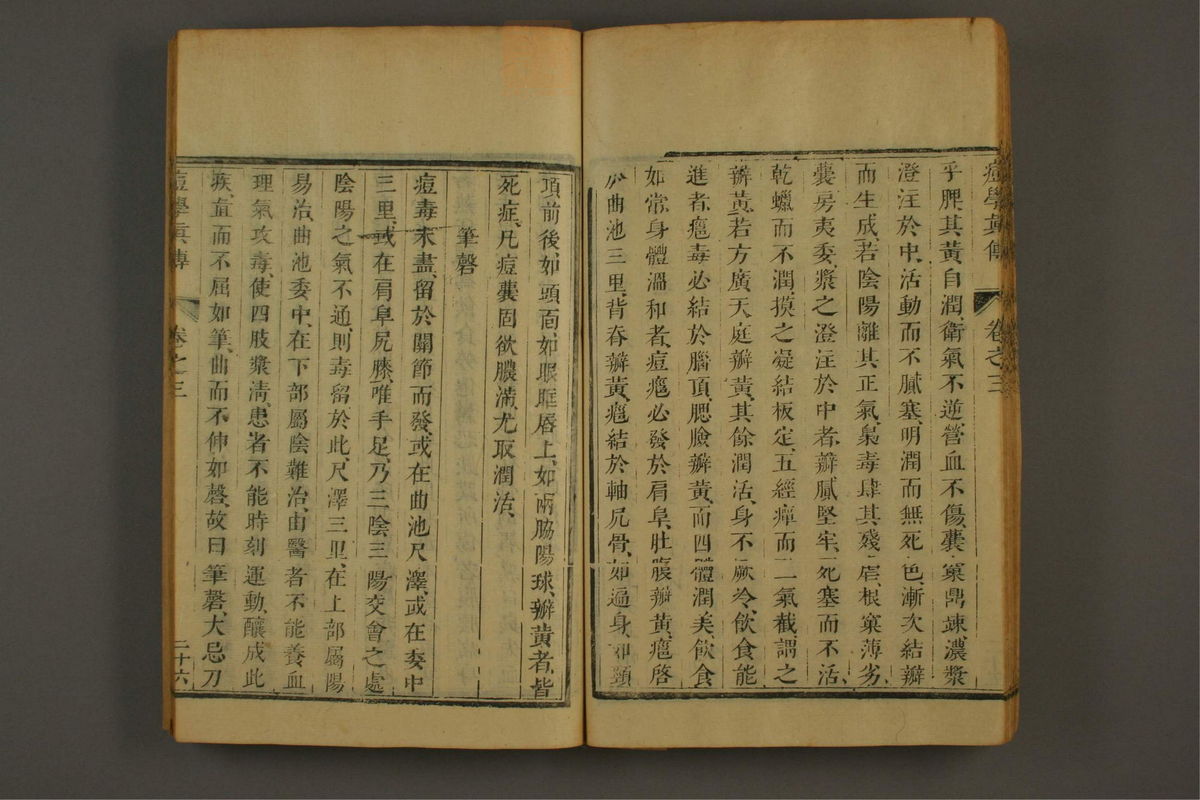 痘學真傳 卷之三
乎脾其黃自潤衛氣不逆營血不傷囊窠鼎竦濃漿
澄注於中活動而不膩塞明潤而無死色漸次結瓣
而生成若陰陽離其正氣梟毒肆其殘虐根窠薄劣
囊房夷委漿之澄注於中者瓣膩堅牢死塞而不活
乾蠟而不潤摸之凝結板定五經癉而二氣截謂之
瓣黃若方廣天庭瓣黃其餘潤活身不厥冷飲食能
進者癍毒必結於腦頂腮臉瓣黃而四體潤美飲食
如常身體溫和者痘癍必發於肩阜肚腹瓣黃癍啓
曲池三里背脊瓣黃癍結於軸尻骨如遍身如頭
項前後如頭面如眼眶唇上如兩脇陽球瓣黃者皆
死症凡痘囊固欲膿滿尤取潤活
筆磬
痘毒未盡留於關節而發或在曲池尺澤或在委中
三里或在肩阜尻膝唯手足乃三陰三陽交會之處
陰陽之氣不通則毒留於此尺澤三里在上部屬陽
易治曲池委中在下部屬陰難治由醫者不能養血
理氣攻毒使四肢漿清患者不能時刻運動釀成此
疾直而不屈如筆曲而不伸如磬故曰筆磬大忌刀
痘學真傳 卷之三 二十六